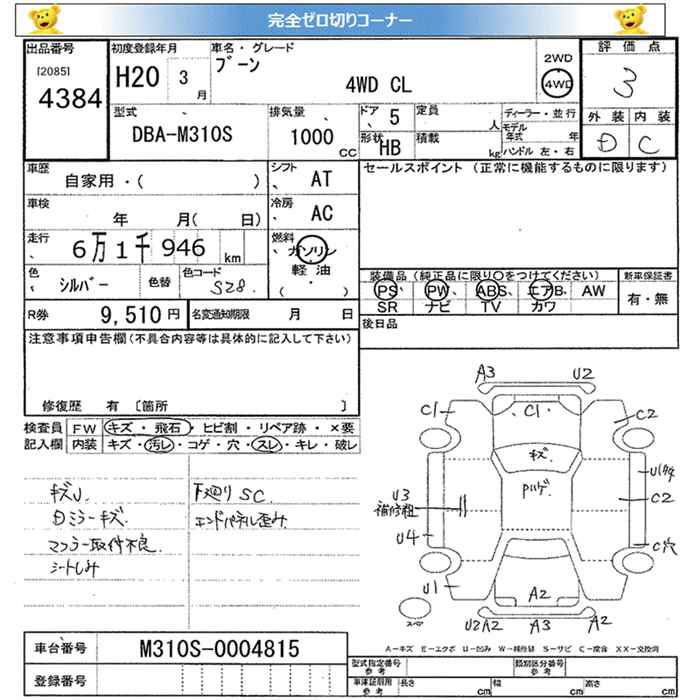 完全ゼロ切りコーナー
出品番号
[2085]
4384
初度登録年月
H20 3 月
車名・グレード
ブーン
4WD CL
2WD
4WD
評価点
3
外装 内装
D C
型式
DBA-M310S
排気量
1000 CC
ドア 5
形状 HB
定員 人
積載 kg
ディーラー・並行
モデル年式 年
ハンドル 左・右
車歴
自家用・( )
シフト
AT
セールスポイント (正常に機能するものに限ります)
車検
年 月( 日)
冷房
AC
走行
6万1千946 km
燃料
ガソリン
軽油
( )
色
シルバー
色替
色コード
S28
装備品 (純正品に限り○をつけてください)
PS、PW、ABS、エアB、AW
SR ナビ TV カワ
新車保証書
有・無
R券 9,510円
名変通知期限 月 日
後日品
注意事項申告欄(不具合内容等は具体的に記入して下さい)
修復歴 有 〔箇所 〕
検査員記入欄
FW キズ・飛石・ヒビ割・リペア跡・×要
内装 キズ・汚レ・コゲ・穴・スレ・キレ・破レ
キズU
Dミラーキズ
マフラー取付不良
シートしみ
下廻りSC
エンドパネル歪み
A3 U2
C1 C1 C2
キズ
Pハゲ
U3
補修粗
C2
U4
C穴
U1
A2
スペア
U2A2 A3 A2
A-キズ E-エクボ U-凹み W-補修跡 S-サビ C-腐食 XX-交換済
車台番号 M310S-0004815
登録番号
型式指定番号 参考
類別区分番号 参考
車庫証明用 参考
長さ cm 幅 cm 高さ cm